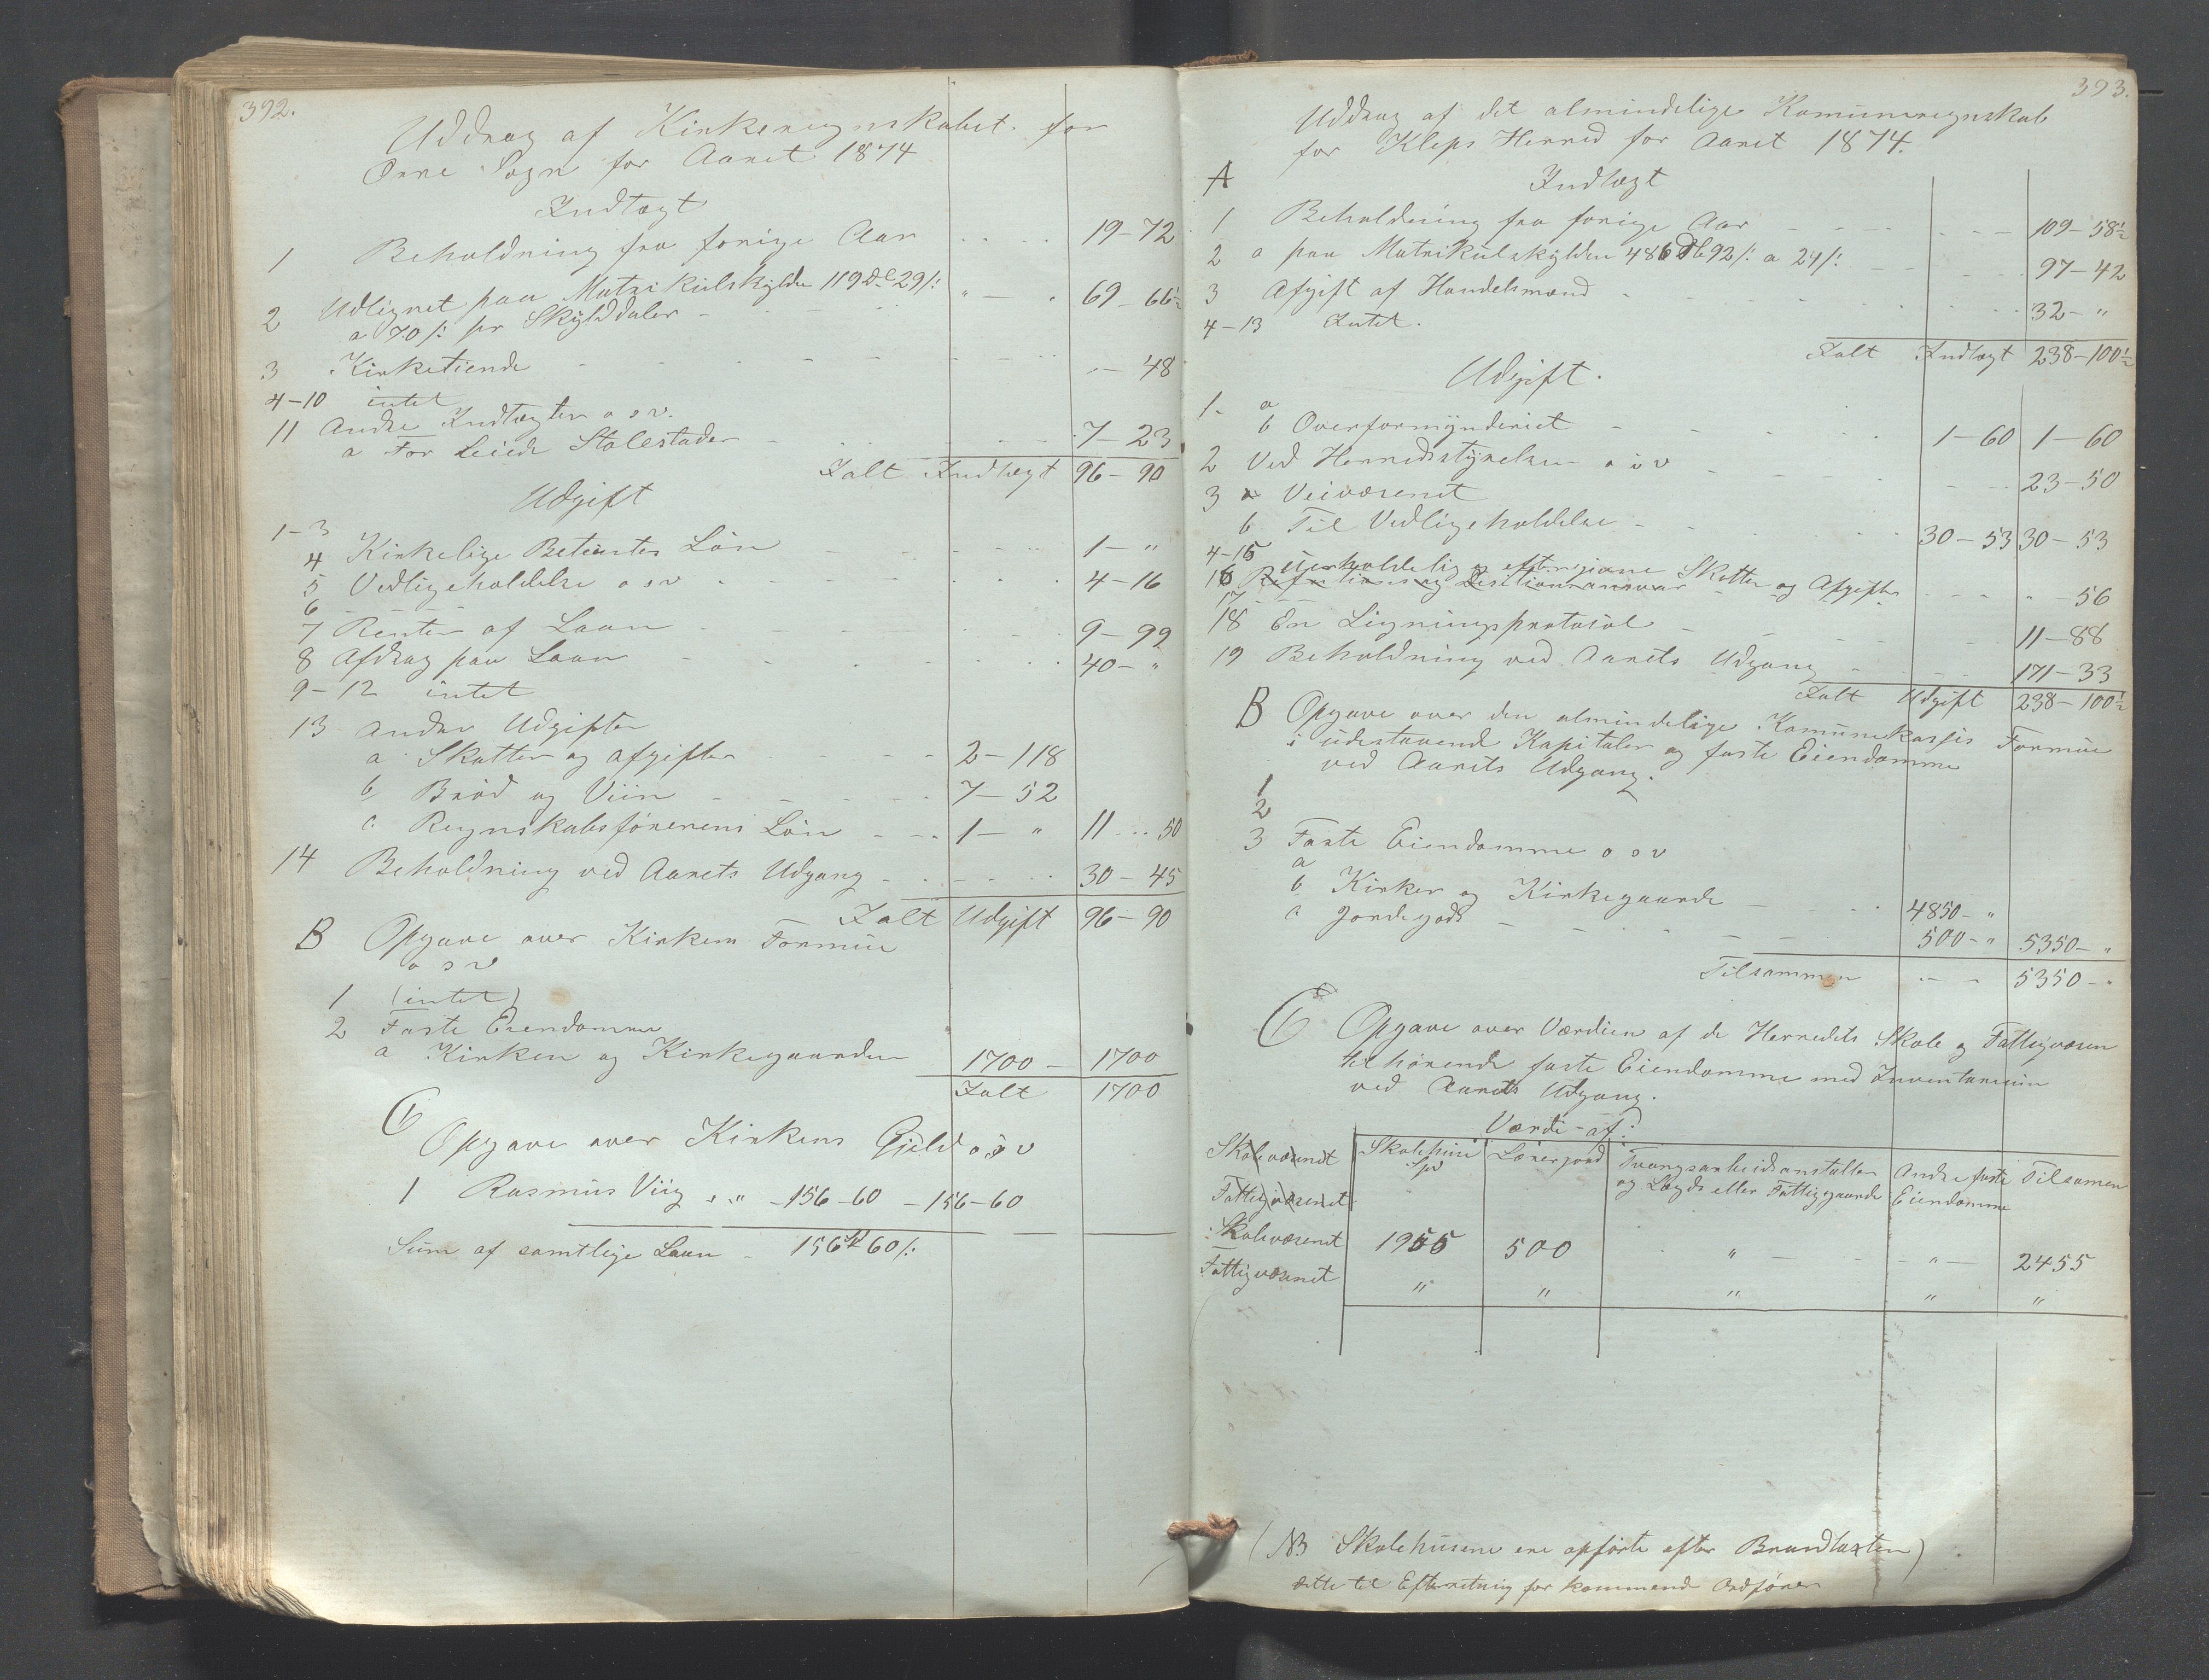 392.
Uddrag af Kirkeregnskabet for
Orre Sogn for Aaret 1874
Indtægt
1 Beholdning fra forrige Aar 19-72
2 Udlignet paa Matrikulskylden 119 Dl 29/:
a 70/: pr Skylddaler 69-66½
3 Kirketiende " - 48
4-10 intet
11 Andre Indtægter o s v.
a For Leiede Stolestader 7-23
Ialt Indtægt 96-90
Udgift
1-3
4 Kirkelige Betientes Løn 1-"
5 Vedligeholdelse o s v 4-16
6
7 Renter af Laan 9-99
8 Afdrag paa Laan 40-"
9-12 intet
13 Andre Udgifter
a Skatter og afgifter 2-118
b Brød og Viin 7-52
c. Regnskabsførerens Løn 1-" 11-50
14 Beholdning ved Aarets Udgang 30-45
Ialt Udgift 96-90
B Opgave over Kirkens Formue
o s v
1 (intet)
2 Faste Eiendomme
a Kirken og Kirkegaarden 1700 - 1700
Ialt 1700
C
Opgave over Kirkens Gjeld o s v
1 Rasmus Viig " " -156-60 -156-60
Sum af samtlige Laan - 156 Sp 60/:
393.
Uddrag af det almindelige Komuneregnskab
for Kleps Herred for Aaret 1874.
A Indtægt
1 Beholdning fra forige Aar 109-58½
2 a paa Matrikulskylden 486 Dl 92/: a 24/: 97-42
3 Afgift af Handelsmænd 32-"
4-13 Intet.
Ialt Indtægt 238-100½
Udgift.
1. a
b Overformynderiet 1-60 1-60
2 Ved Herredsstyrelsen o s v 23-50
3 a Veivæsenet
b Til Vedligeholdelse 30-53 30-53
4-15 Uerholdelig og eftergivne Skatter og Afgifter
16 " -56
17
18 En Ligningsprotocol 11-88
19 Beholdning ved Aarets Udgang 171-33
Ialt Udgift 238-100½
B Opgave over den almindelige Komunekasses Formue
i udestaaende Kapitaler og faste Eiendomme
ved Aarets Udgang.
1
2
3 Faste Eiendomme o s v
a
b Kirker og Kirkegaarde 4850-"
c Jordegods 500-" 5350-"
Tilsammen 5350-"
C Opgave over Værdien af de Herredets Skole og Fattigvæsen
tilhørende faste Eiendomme med Inventarium
ved Aarets Udgang.
Værdi af:
Skolevæsenet Skolehuse Lærerjord Tvangsarbeidsanstalter Andre faste Tilsamen
Fattigvæsenet Sp og Lægds eller Fattiggaarde Eiendomme
Skolevæsenet 1955 500 " " 2455
Fattigvæsenet " " " " "
(NB Skolehusene ere opførte efter Brandtaxten)
dette til Efterretning for kommende Ordfører